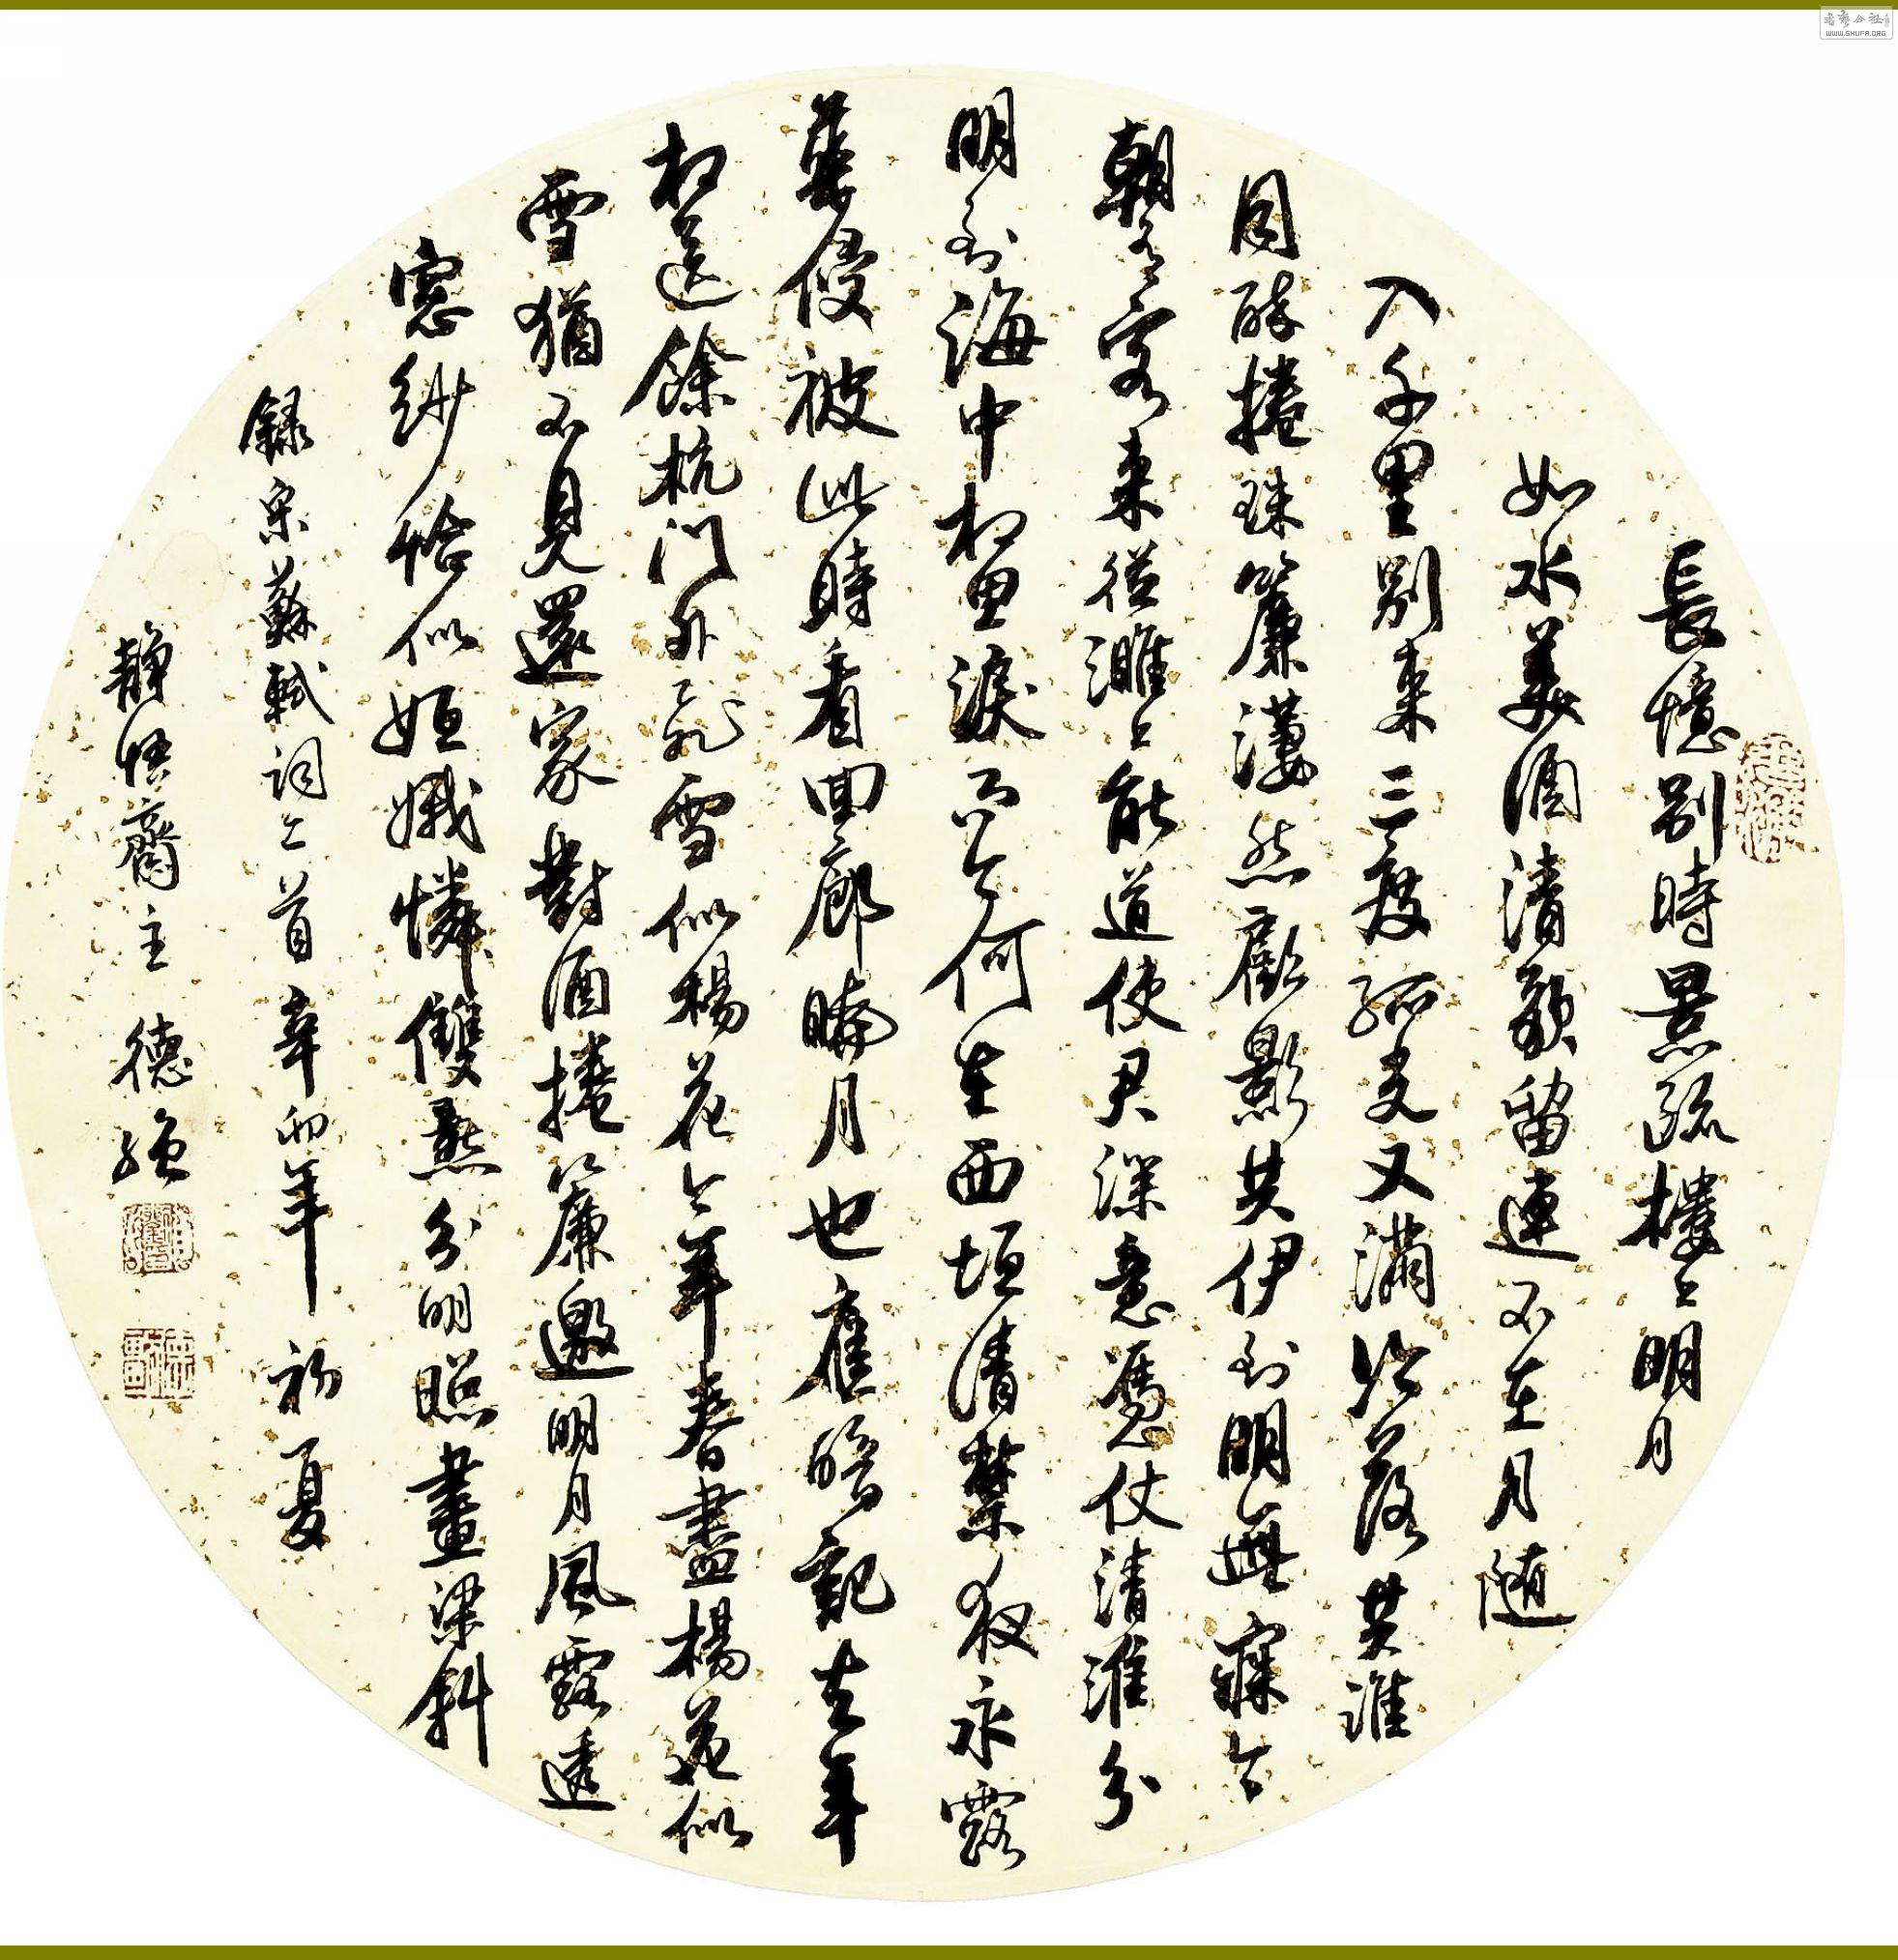 長憶別時景疏樓上明月
如水美酒清歌留連不在月随
人千里別來三度孤光又滿冷落共誰
同醉捲珠簾淒然顧影共伊到明無寐今
朝有客來從濉上能道使君深意憑仗清淮分
明到海中相思淚而今何在西垣清禁夜永露
華侵被此時看回廊曉月也應暗記去年
相送餘杭門外飛雪似楊花今年春盡楊花似
雪猶不見還家對酒捲簾邀明月風露透
窗紗恰似姮娥憐雙燕分明照畫梁斜
録宋蘇軾詞二首辛卯年初夏
靜悟齋主德強
WWW.SHUFA.ORG